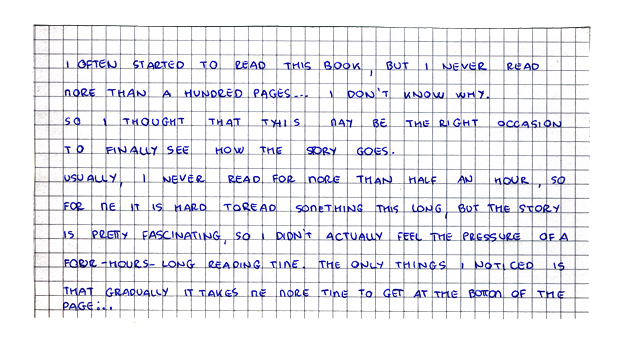 I OFTEN STARTED TO READ THIS BOOK, BUT I NEVER READ
MORE THAN A HUNDRED PAGES... I DON'T KNOW WHY.
SO I THOUGHT THAT THIS MAY BE THE RIGHT OCCASION
TO FINALLY SEE HOW THE STORY GOES.
USUALLY, I NEVER READ FOR MORE THAN HALF AN HOUR, SO
FOR ME IT IS HARD TO READ SOMETHING THIS LONG, BUT THE STORY
IS PRETTY FASCINATING, SO I DIDN'T ACTUALLY FEEL THE PRESSURE OF A
FOUR-HOURS-LONG READING TIME. THE ONLY THINGS I NOTICED IS
THAT GRADUALLY IT TAKES ME MORE TIME TO GET AT THE BOTTOM OF THE
PAGE...